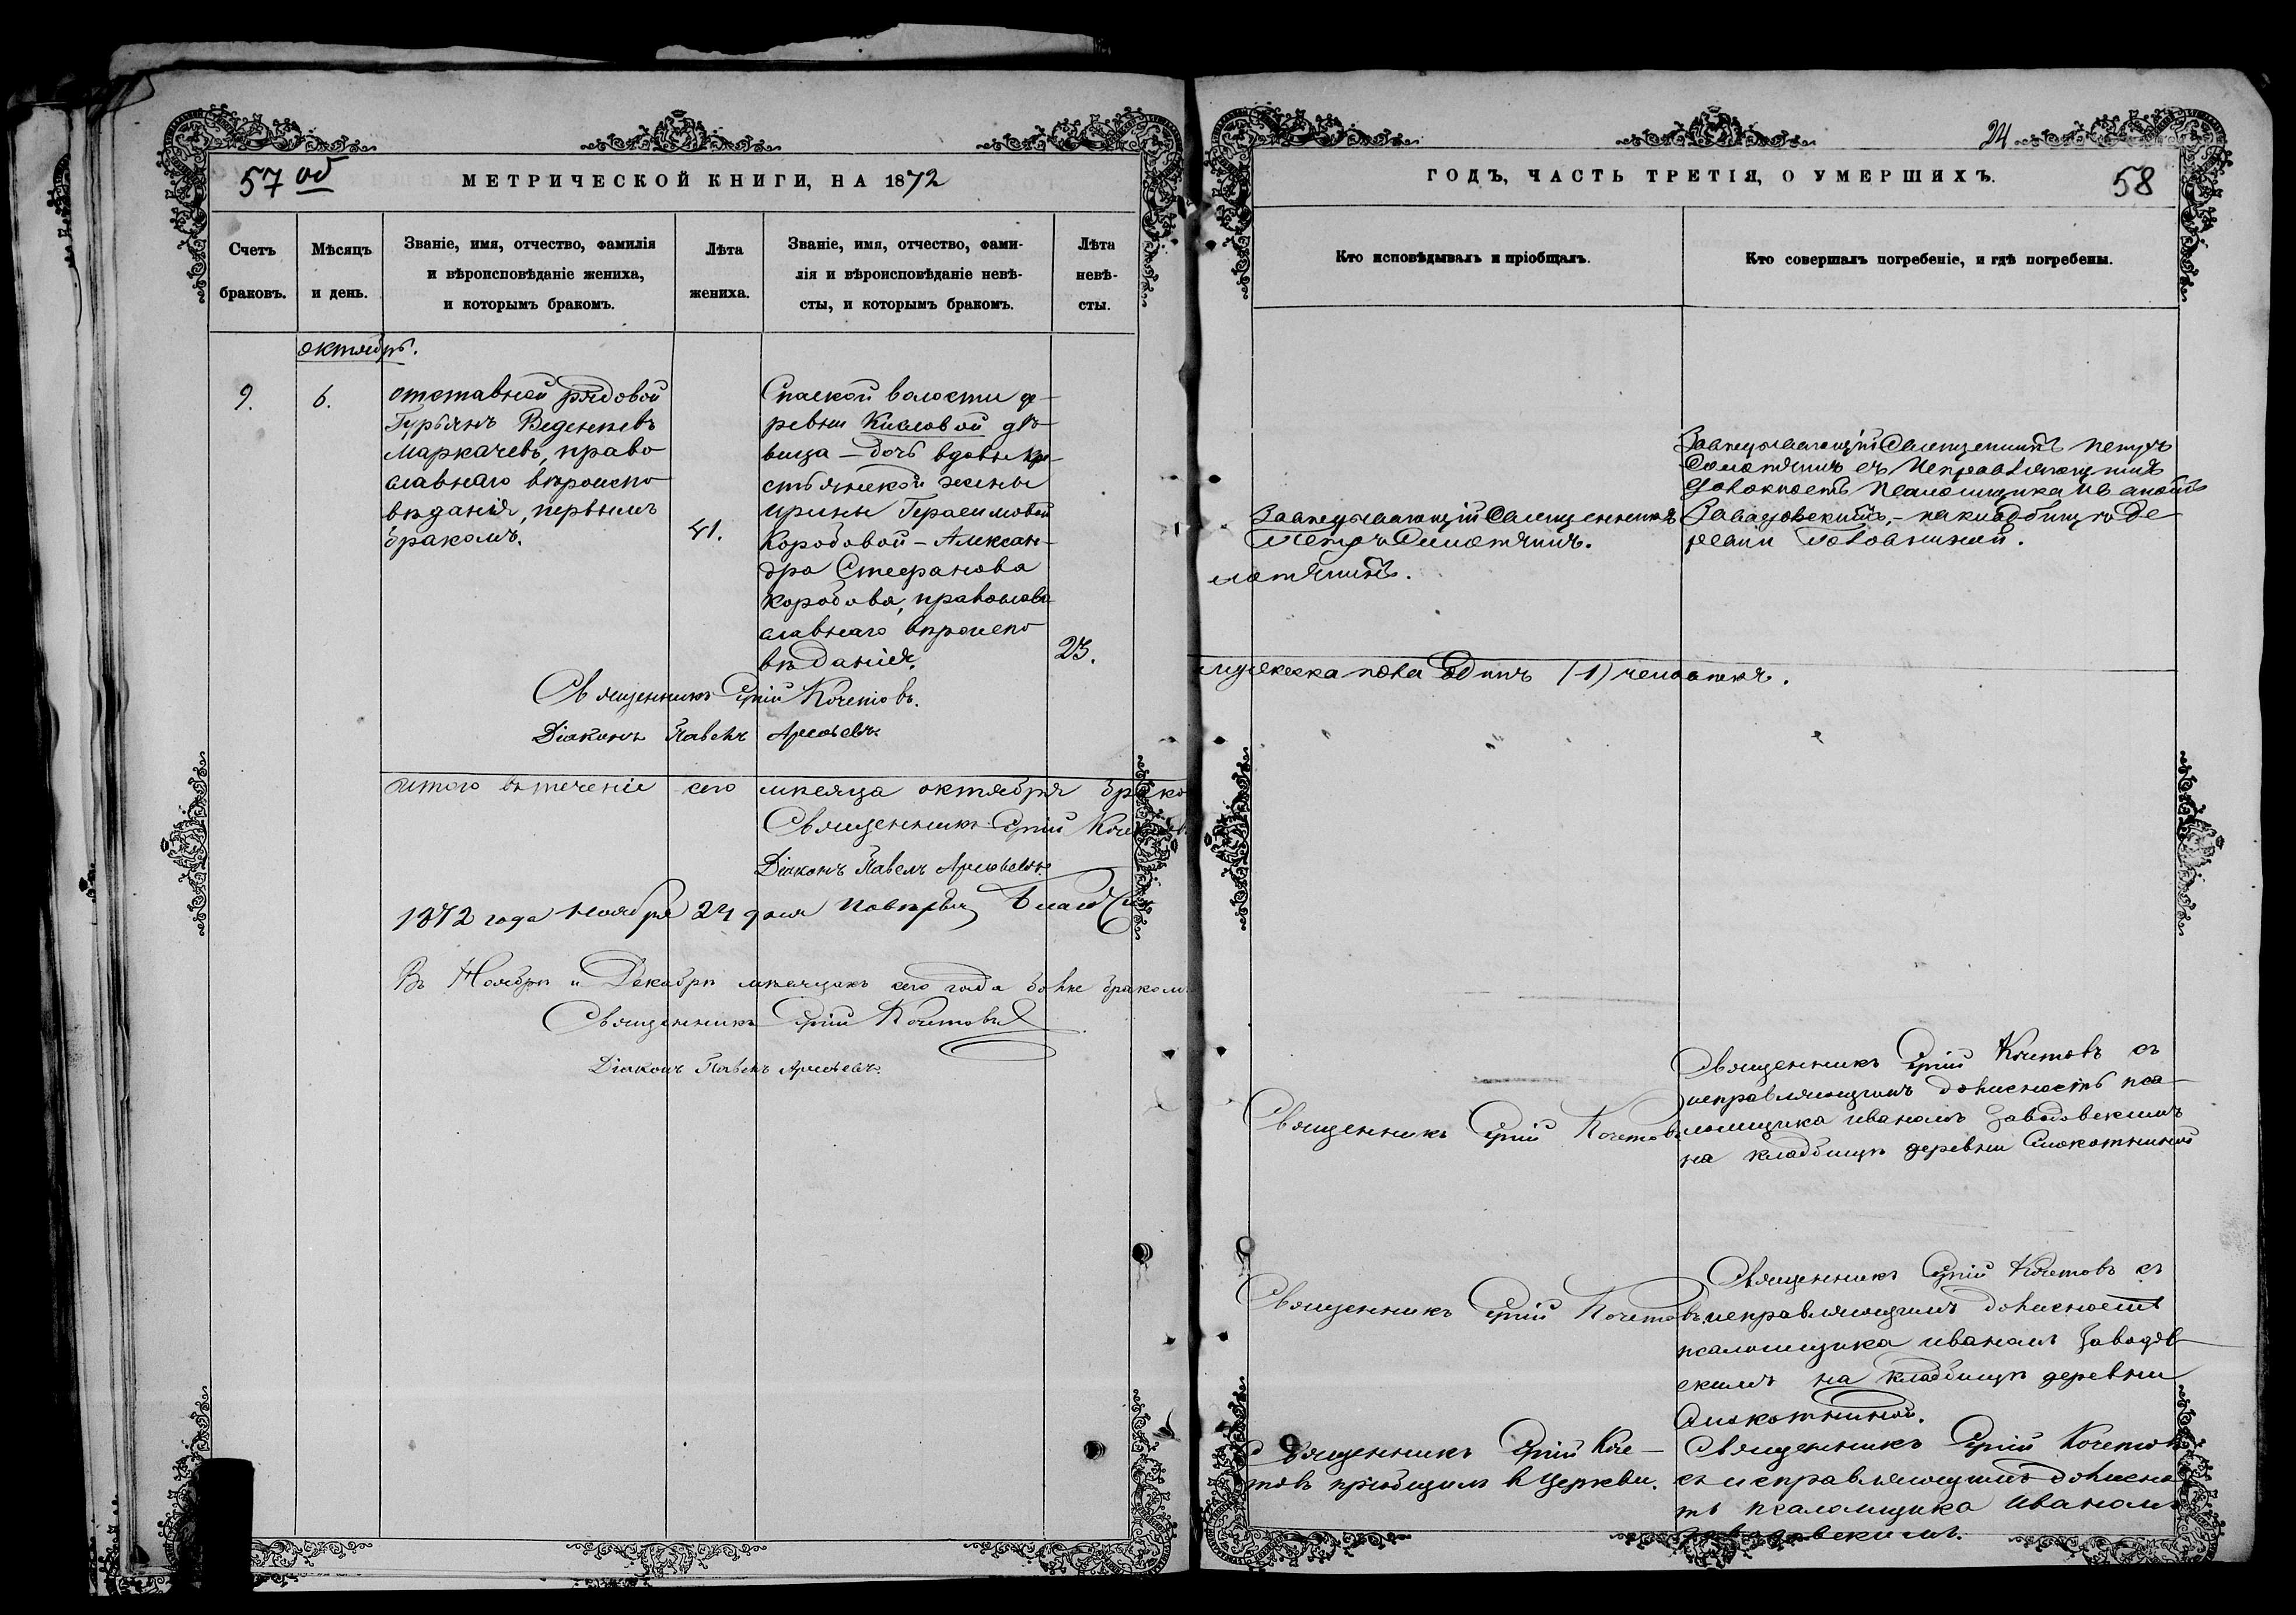 57 об
МЕТРИЧЕСКОЙ КНИГИ, НА 1872
Счетъ браковъ.
Мѣсяцъ и день.
Званіе, имя, отчество, фамилія
и вѣроисповѣданіе жениха,
и которымъ бракомъ.
Лѣта жениха.
Званіе, имя, отчество, фами-
лія и вѣроисповѣданіе невѣ-
сты, и которымъ бракомъ.
Лѣта невѣ-
сты.
октябрь.
9.
6.
отставной рядовой
Гурьянъ
Маркачевъ, право
славнаго вѣроиспо
вѣданія, первымъ
бракомъ.
41.
Спаской волости де-
ревни Кисловой дѣ-
вица – дочь вдовы кре-
стьянской жены
Ирины Герасимовой
Коробовой – Алексан-
дра Стефанова
Коробова, православ
славнаго вѣроиспо
вѣданія.
23.
Священникъ Кочетовъ.
Діаконъ Павелъ
итого въ теченіе сего мѣсяца октября брако
Священникъ
Діаконъ Павелъ
1872 года Ноября 24 дня
Въ Ноябрѣ и Декабрѣ мѣсяцахъ сего года браком
Священникъ Кочетовъ
Діаконъ Павелъ
24
ГОДЪ, ЧАСТЬ ТРЕТІЯ, О УМЕРШИХЪ.
58
Кто исповѣдывалъ и пріобщалъ.
Кто совершалъ погребеніе, и гдѣ погребены.
Завѣдывающій Священникъ
Петръ
Завѣдывающій Священникъ Петръ
съ Исправляющимъ
должность Псаломщика Иваномъ
Заводовскимъ, – на кладбищѣ де
ревни
мужеска пола одинъ (1) человѣкъ.
Священникъ Кочетовъ
Священникъ Кочетовъ съ
исправляющимъ должность пса-
ломщика Иваномъ Заводовскимъ
на кладбищѣ деревни Смокотниной
Священникъ Кочетовъ
Священникъ Кочетовъ съ
исправляющимъ должность
псаломщика Иваномъ Заводов-
скимъ на кладбищѣ деревни
Смокотниной.
Священникъ Коче-
товъ пріобщилъ въ Церкви.
Священникъ Кочетовъ
съ исправляющимъ должнос
ть псаломщика Иваномъ
Заводовскимъ.